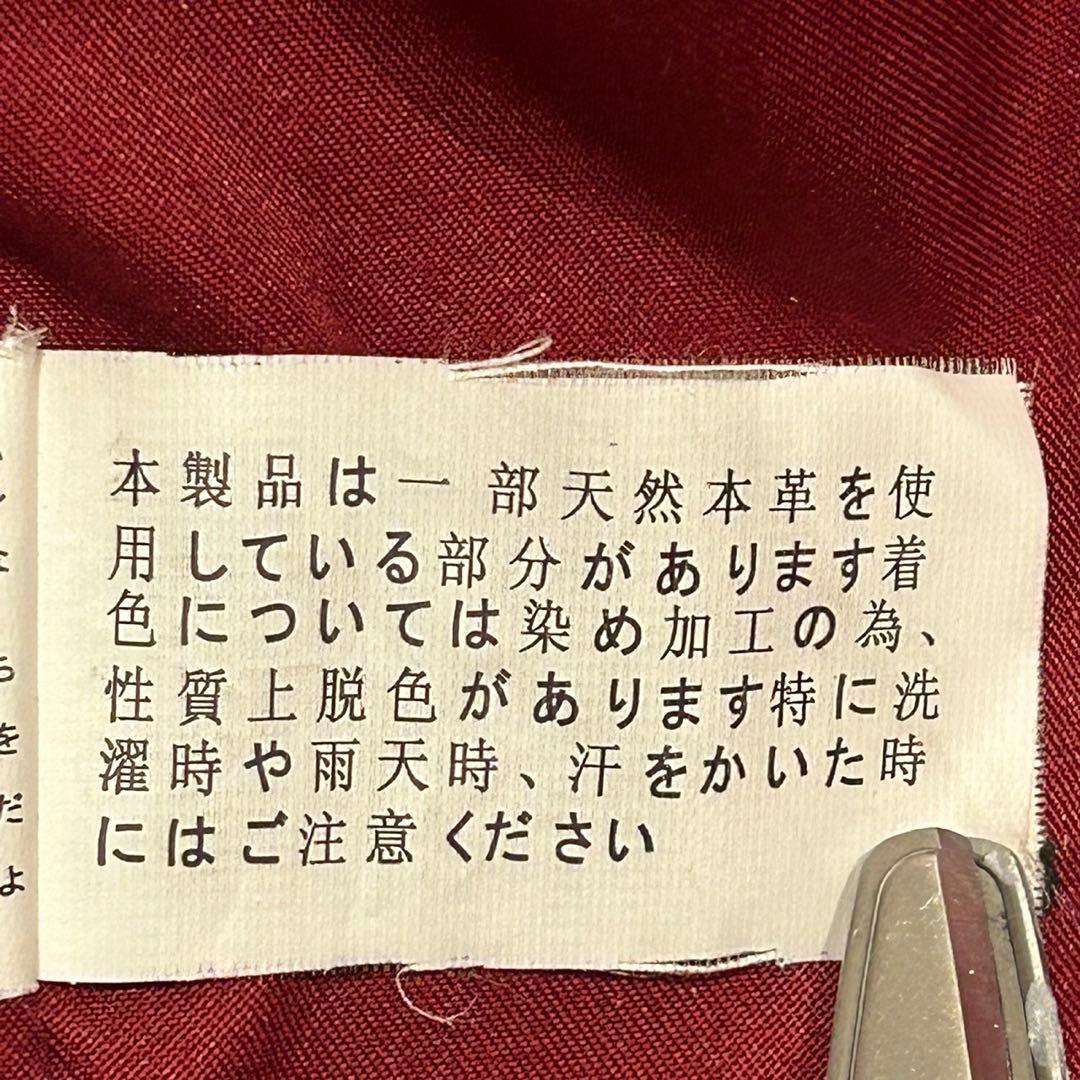 本製品は一部天然本革を使
用している部分があります着
色については染め加工の為、
性質上脱色があります特に洗
濯時や雨天時、汗をかいた時
にはご注意ください